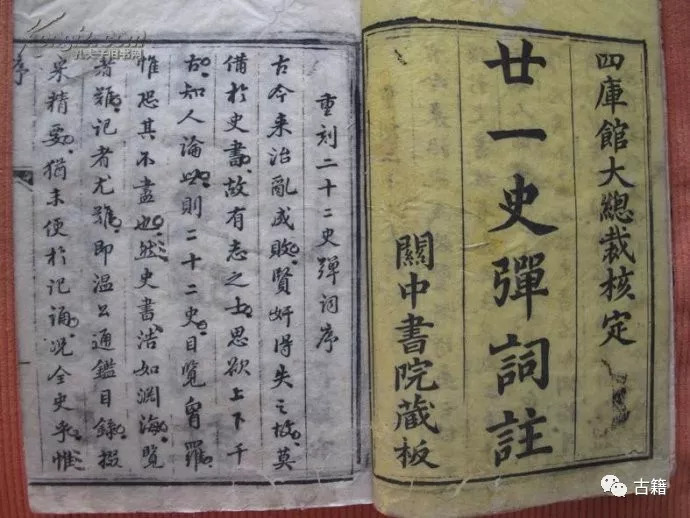 四庫館大總裁核定
廿一史彈詞註
關中書院藏板
重刻二十二史彈词序
古今来治亂成敗賢奸得失之故莫
備於史書故有志之士思欲上下千
古知人論世則二十二史目覽胷羅
惟恐其不盡也然史書浩如渊海覽
者難記者尤難即温公通鑑目錄掇
采精要猶未便於記誦况全史乎惟
序
古籍